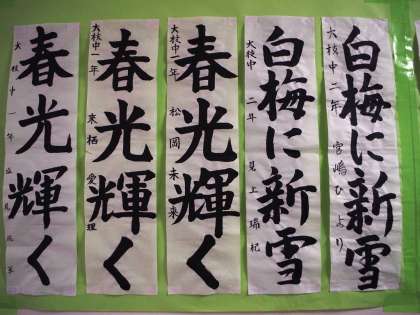 白梅に新雪
大枝中二年 宮嶋ひより
白梅に新雪
大枝中 二年 見上瑞紀
春光輝く
大枝中一年 松岡未来
春光輝く
大枝中一年 来栖愛理
春光輝く
大枝中一年